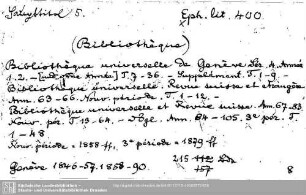 Haupttitel 5.
Eph. lit. 400
(Bibliothèque)
Bibliothèque universelle de Genève Sér. 4. Année
1.2. - [ Année] T. 7-36. - Supplément. T. 1-9. -
Bibliothèque universelle. Revue suisse et étrangère
Ann. 63-66. Nouv. période T. 1-12. -
Bibliothèque universelle et Revue suisse. Ann. 67-83
Nouv. pér. T. 13-64. - Ann. 84-105. 3e pér. T.
1-48.
Nouv. période = 1858 ff., 3e période = 1879 ff
215
Genève. 1846-57. 1858-90.
8